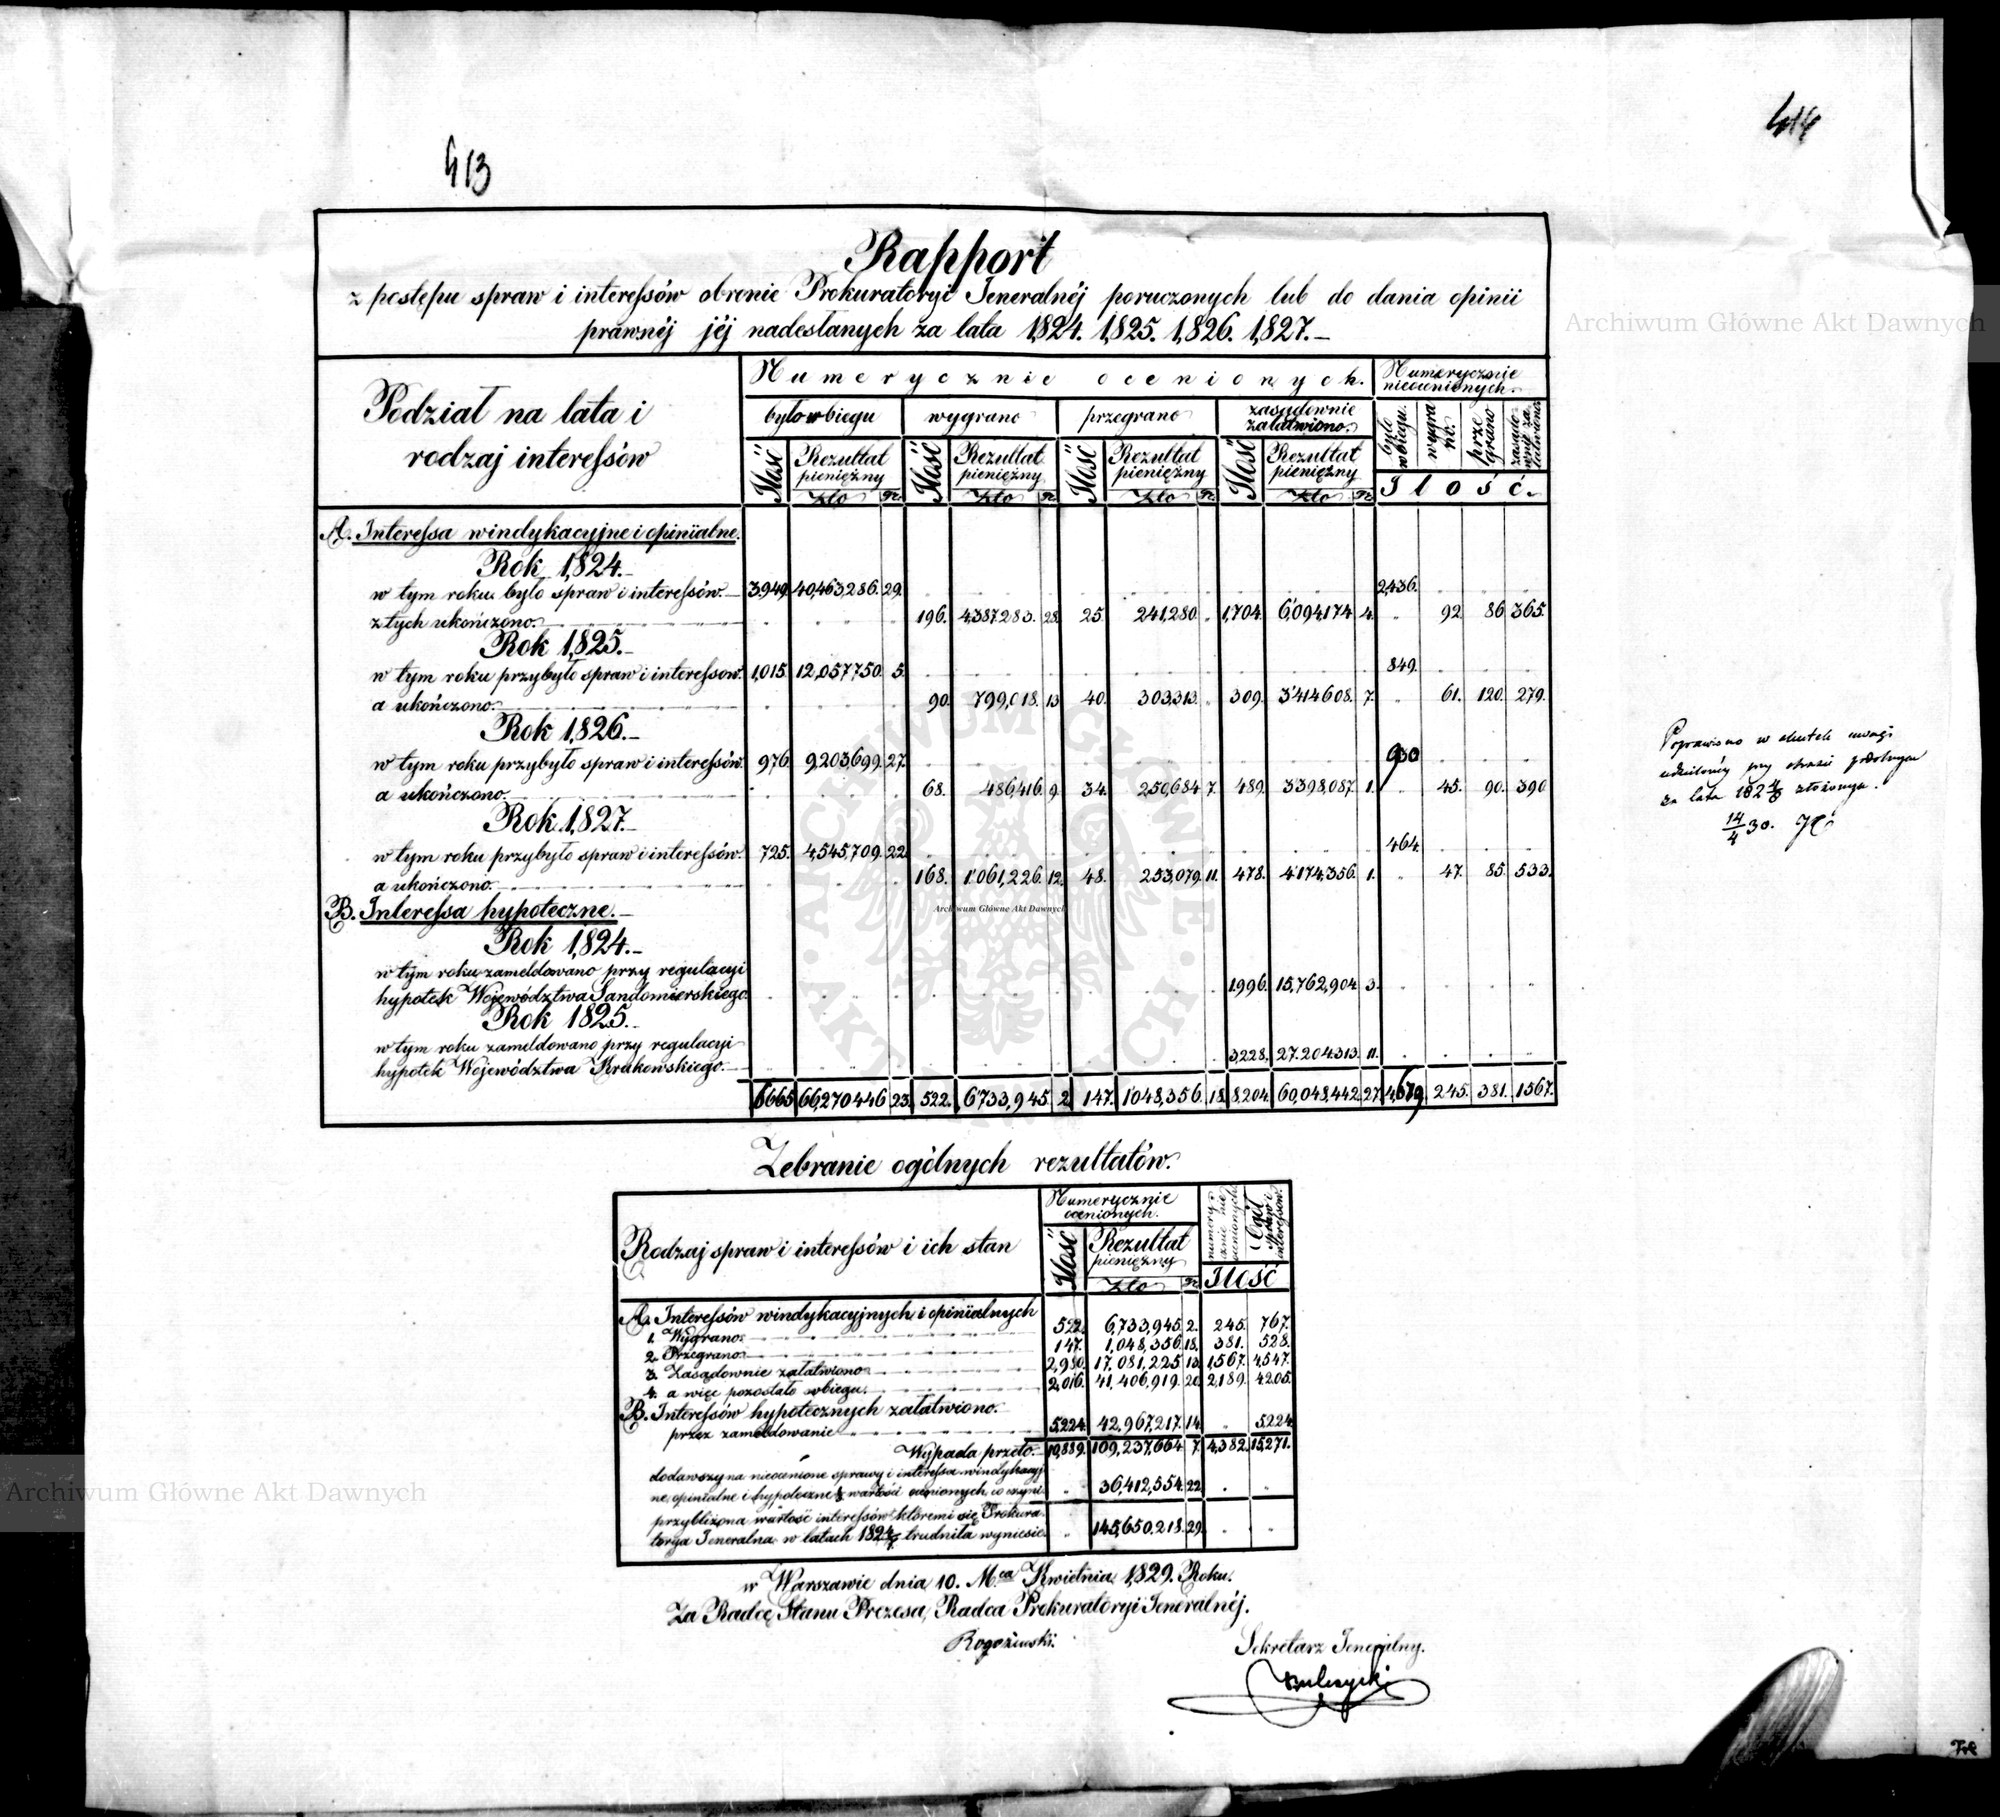 413
414
Rapport
z postępu spraw i interessów obronie Prokuratoryi Jeneralnéj poruczonych lub do dania opinii
prawnéj jéj nadesłanych za lata 1,824. 1,825. 1,826. 1,827.–
Podział na lata i
rodzaj interessów
Numerycznie ocenionych.
Numerycznie
nieocenionych.
było w biegu
wygrano
przegrano
zasądownie
załatwiono.
było
w biegu.
wygra
no.
prze
grano
zasądo
wnie za
łatwiono
Ilość
Rezultat
pieniężny
Złp
gr.
Ilość
Rezultat
pieniężny
Złp
gr.
Ilość
Rezultat
pieniężny
Złp
gr.
Ilość
Rezultat
pieniężny
Złp
gr.
Ilość.
A. Interessa windykacyjne i opinialne.
Rok 1,824.–
w tym roku było spraw i interessów.– 3,949. 40,463,286. 29. 2,436.
z tych ukończono. 196. 4,387,283. 28. 25. 241,280. 1,704. 6,094,174. 4. 92. 86. 365.
Rok 1,825.–
w tym roku przybyło spraw i interessow. 1,015. 12,057,750. 5. 849.
a ukończono. 90. 799,018. 13. 40. 303,313. 309. 3,414,608. 7. 61. 120. 279.
Rok 1,826.–
w tym roku przybyło spraw i interessów. 976. 9,203,699. 27. 930
a ukończono. 68. 486,416. 9. 34. 250,684. 7. 489. 3,398,087. 1. 45. 90. 390
Rok 1,827.–
w tym roku przybyło spraw i interessów. 725. 4,545,709. 22. 464.
a ukończono. 168. 1,061,226. 12. 48. 253,079. 11. 478. 4,174,356. 1. 47. 85. 533.
B. Interessa hypoteczne.–
Rok 1,824.–
w tym roku zameldowano przy regulacyi
hypotek Województwa Sandomierskiego. 1,996. 15,762,904. 3.
Rok 1825.
w tym roku zameldowano przy regulacyi
hypotek Województwa Krakowskiego. 3,228. 27,204,313. 11.
6665 66270446 23. 522. 6733,945. 2. 147. 1048,356. 18. 8,204. 60,048,442. 27. 4,679. 245. 381. 1567.
Poprawiono w skutek uwagi
za lata złożonym.
14/4 30.
Zebranie ogólnych rezultatów.
Rodzaj spraw i interessów i ich stan
Numerycznie
ocenionych.
numery
cznie nie
ocenionych
Ogół
spraw i
interessów.
Ilość
Rezultat
pieniężny
Złp
gr.
Ilość
A. Interessów windykacyjnych i opinialnych
1. Wygrano. 522. 6,733,945. 2. 245. 767.
2. Przegrano. 147. 1,048,356. 18. 381. 528.
3. Zasądownie załatwiono 2,980. 17,081,225. 13. 1,567. 4,547.
4. a więc pozostało w biegu. 2,016. 41,406,919. 20. 2,189. 4205.
B. Interessów hypotecznych załatwiono.
przez zameldowanie 5224. 42,967,217. 14. 5224.
Wypada przeto.– 10,889. 109,237,664. 7. 4,382. 15,271.
dodawszy na nieocenione sprawy i interessa windykacyj
ne, opinialne i hypoteczne ⅓ wartości ocenionych, co czyni 36,412,554. 22.
przybliżona wartość interessów któremi się Prokura
torya Jeneralna w latach 1824/7 trudniła wyniesie 145,650,218. 29.
w Warszawie dnia 10. Mca Kwietnia 1,829. Roku.
Za Radcę Stanu Prezesa, Radca Prokuratoryi Jeneralnéj.
Sekretarz Jeneralny.
Archiwum Główne Akt Dawnych
Archiwum Główne Akt Dawnych
Archiwum Główne Akt Dawnych
ARCHIWUM GŁÓWNE AKT DAWNYCH